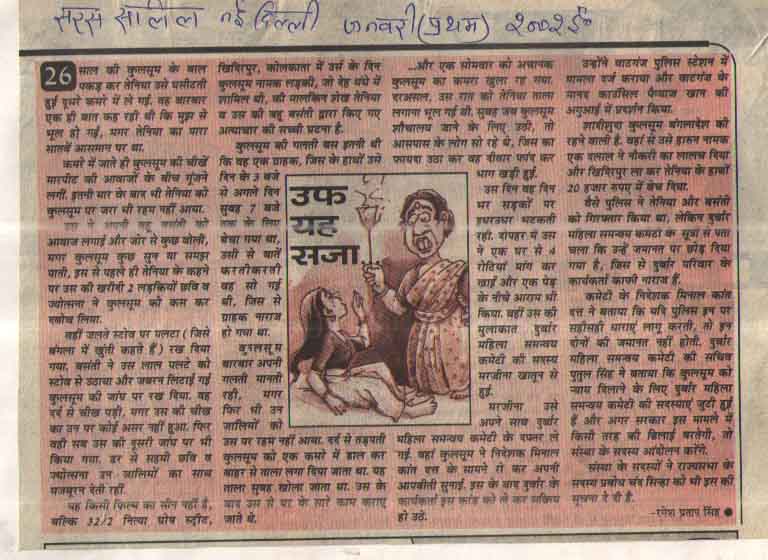 सरस सलिल नई दिल्ली जनवरी (प्रथम) २००२ ई॰
26 साल की कुलसूम के बाल
पकड़ कर तेनिया उसे घसीटती
हुई दूसरे कमरे में ले गई. वह बारबार
एक ही बात कह रही थी कि मुझ से
भूल हो गई, मगर तेनिया का पारा
सातवें आसमान पर था.
कमरे में जाते ही कुलसूम की चीखें
मारपीट की आवाजों के बीच गूंजने
लगीं. इतनी मार के बाद भी तेनिया को
कुलसूम पर जरा भी रहम नहीं आया.
उस ने अपनी बहू बसंती को
आवाज लगाई और जोर से कुछ बोली,
मगर कुलसूम कुछ सुन या समझ
पाती, इस से पहले ही तेनिया के कहने
पर उस की खरीदी 2 लड़कियों छवि व
ज्योत्सना ने कुलसूम को कस कर
दबोच लिया.
वहीं जलते स्टोव पर पलटा (जिसे
बंगला में खुंती कहते हैं) रख दिया
गया. बसंती ने उस लाल पलटे को
स्टोव से उठाया और जबरन लिटाई गई
कुलसूम की जांघ पर रख दिया. वह
दर्द से चीख पड़ी, मगर उस की चीख
का उन पर कोई असर नहीं हुआ. फिर
वही सब उस की दूसरी जांघ पर भी
किया गया. डर से सहमी छवि व
ज्योत्सना उन जालिमों का साथ
मजबूरन देती रहीं.
यह किसी फिल्म का सीन नहीं है,
बल्कि 32/2 नित्या घोष स्ट्रीट,
खिदिरपुर, कोलकाता में उर्स के दिन
कुलसूम नामक लड़की, जो देह धंधे में
शामिल थी, की मालकिन शेख तेनिया
व उस की बहू बसंती द्वारा किए गए
अत्याचार की सच्ची घटना है.
कुलसूम की गलती बस इतनी थी
कि वह एक ग्राहक, जिस के हाथों उसे
दिन के 3 बजे
से अगले दिन
सुबह 7 बजे
तक के लिए
बेचा गया था,
उसी से बातें
करतीकरती
वह सो गई
थी, जिस से
ग्राहक नाराज
हो गया था.
कुलसूम
बारबार अपनी
गलती मानती
रही, मगर
फिर भी उन
जालिमों को
उस पर रहम नहीं आया. दर्द से तड़पती
कुलसूम को एक कमरे में डाल कर
बाहर से ताला लगा दिया जाता था. यह
ताला सुबह खोला जाता था. उस के
बाद उस से घर के सारे काम कराए
जाते थे.
उफ
यह
सजा...
...और एक सोमवार को अचानक
कुलसूम का कमरा खुला रह गया.
दरअसल, उस रात को तेनिया ताला
लगाना भूल गई थी. सुबह जब कुलसूम
शौचालय जाने के लिए उठी, तो
आसपास के लोग सो रहे थे, जिस का
फायदा उठा कर वह दीवार फांद कर
भाग खड़ी हुई.
उस दिन वह दिन
भर सड़कों पर
इधरउधर भटकती
रही. दोपहर में उस
ने एक घर से 4
रोटियां मांग कर
खाईं और एक पेड़
के नीचे आराम भी
किया. वहीं उस की
मुलाकात दुर्बार
महिला समन्वय
कमेटी की सदस्य
मरजीना खातून से
हुई.
मरजीना उसे
अपने साथ दुर्बार
महिला समन्वय कमेटी के दफ्तर ले
गई. वहां कुलसूम ने निदेशक मिनाल
कांत दत्त के सामने रो कर अपनी
आपबीती सुनाई. इस के बाद दुर्बार के
कार्यकर्ता इस कांड को ले कर सक्रिय
हो उठे.
उन्होंने वाटगंज पुलिस स्टेशन में
मामला दर्ज कराया और वाटगंज के
मानद काउंसिल फैयाज खान की
अगुआई में प्रदर्शन किया.
शादीशुदा कुलसूम बंगलादेश की
रहने वाली है. वहां से उसे हारून नामक
एक दलाल ने नौकरी का लालच दिया
और खिदिरपुर ला कर तेनिया के हाथों
20 हजार रुपए में बेच दिया.
वैसे पुलिस ने तेनिया और बसंती
को गिरफ्तार किया था, लेकिन दुर्बार
महिला समन्वय कमेटी के सूत्रों से पता
चला कि उन्हें जमानत पर छोड़ दिया
गया है, जिस से दुर्बार परिवार के
कार्यकर्ता काफी नाराज हैं.
कमेटी के निदेशक मिनाल कांत
दत्त ने बताया कि यदि पुलिस इन पर
सहीसही धाराएं लागू करती, तो इन
दोनों की जमानत नहीं होती. दुर्बार
महिला समन्वय कमेटी की सचिव
पुतुल सिंह ने बताया कि कुलसूम को
न्याय दिलाने के लिए दुर्बार महिला
समन्वय कमेटी की सदस्याएं जुटी हुई
हैं और अगर सरकार इस मामले में
किसी तरह की ढिलाई बरतेगी, तो
संस्था के सदस्य आंदोलन करेंगे.
संस्था के सदस्यों ने राज्यसभा के
सदस्य प्रबोध चंद्र सिन्हा को भी इस की
सूचना दे दी है.
-रमेश प्रताप सिंह ●